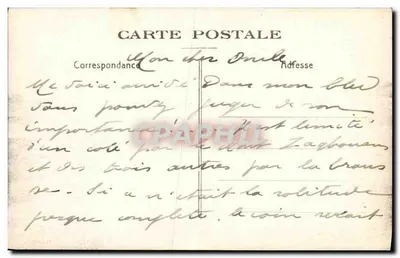 CARTE POSTALE
Correspondance
Adresse
Mon cher Oncle
Me voici arrivé Dans mon bled
Vous pouvez juger de son
importance! Il est limité
d'un coté par le
et des trois autres par la brous
se. Si ce n'était la solitude
presque complète, le coin serait
CPAPHIL